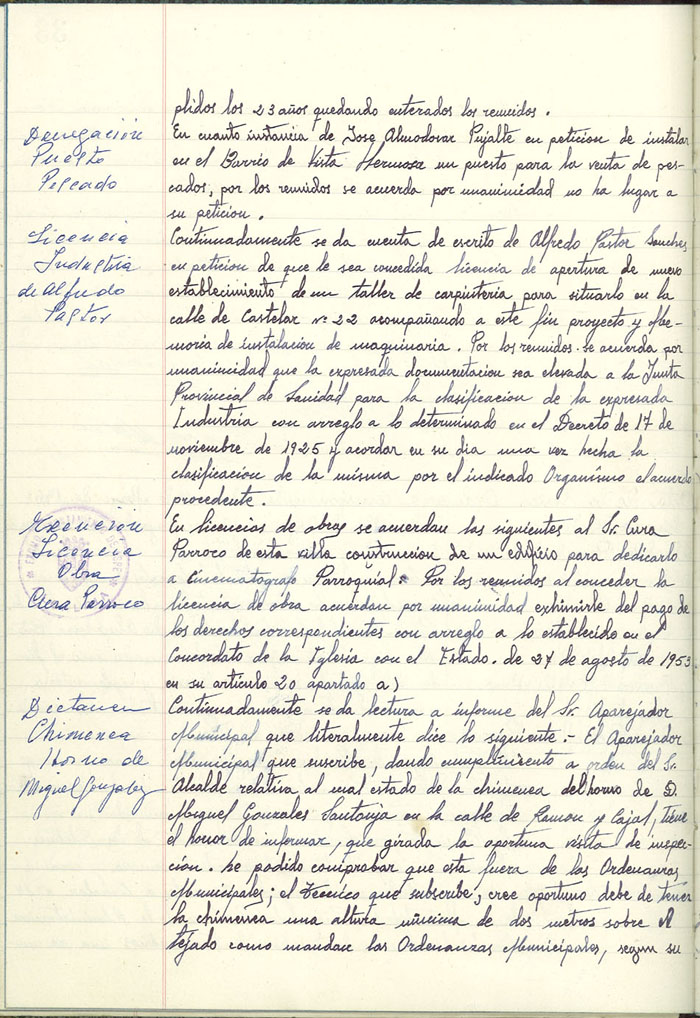 plidos los 23 años quedando enterados los reunidos.
Denegación
Puesto
Pescado
En cuanto instancia de Jose Almodovar Pujalte en peticion de instalar
en el Barrio de Vista Hermosa un puesto para la venta de pes-
cados, por los reunidos se acuerda por unanimidad no ha lugar a
su peticion.
Licencia
Industria
de Alfredo
Pastor
Continuadamente se da cuenta de escrito de Alfredo Pastor Sanches
en peticion de que le sea concedida licencia de apertura de nuevo
establecimiento de un taller de carpinteria para situarlo en la
calle de Castelar nº 22 acompañando a este fin proyecto y Me-
moria de instalacion de maquinaria. Por los reunidos se acuerda por
unanimidad que la expresada documentacion sea elevada a la Junta
Provincial de Sanidad para la clasificacion de la expresada
Industria con arreglo a lo determinado en el Decreto de 17 de
noviembre de 1925 y acordar en su dia una vez hecha la
clasificacion de la misma por el indicado Organismo el acuerdo
procedente.
Exencion
Licencia
Obra
Cura Parroco
En licencias de obras se acuerdan las siguientes al Sr. Cura
Parroco de esta villa construccion de un edificio para dedicarlo
a Cinematografo Parroquial. Por los reunidos al conceder la
licencia de obra acuerdan por unanimidad exhimirle del pago de
los derechos correspondientes con arreglo a lo establecido en el
Concordato de la Iglesia con el Estado. de 27 de agosto de 1953
en su articulo 20 apartado a)
Dictamen
Chimenea
Horno de
Miguel Gonzalez
Continuadamente se da lectura a informe del Sr. Aparejador
Municipal que literalmente dice lo siguiente.- El Aparejador
Municipal que suscribe, dando cumplimiento a orden del Sr.
Alcalde relativa al mal estado de la chimenea del horno de D.
Miguel Gonzales Santonja en la calle de Ramon y Cajal, tiene
el honor de informar, que girada la oportuna visita de inspec-
cion. he podido comprobar que esta fuera de las Ordenanzas
Municipales; el Tecnico que subscribe, cree oportuno debe de tener
la chimenea una altura minima de dos metros sobre el
tejado como mandan las Ordenanzas Municipales, segun su